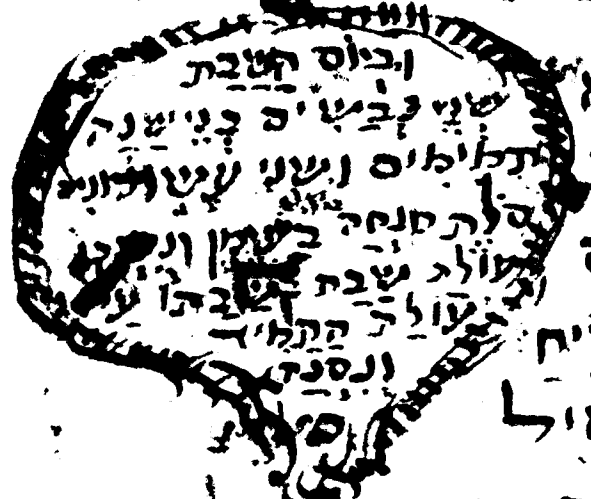 וביום השבת
שני כבשים בני שנה
תמימים ושני עשרונים
סלת מנחה בשמן ונסכו
עולת שבת בשבתו על
עולת התמיד
ונסכה